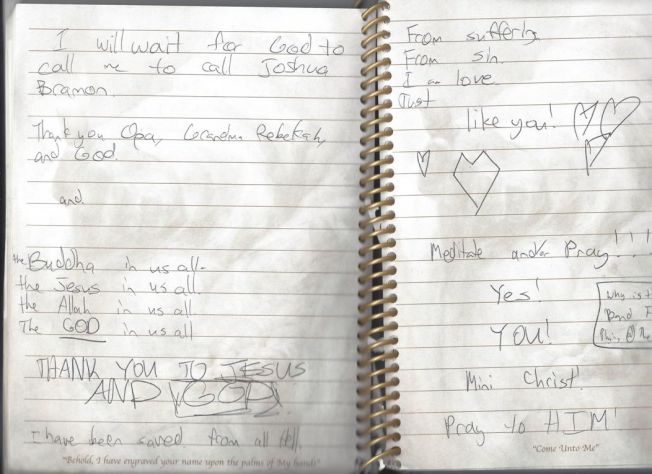 I will wait for God to
call me to call Joshua
Bramon.
Thank you Opa, Grandma Rebekah,
and God.
and
the Buddha in us all.
the Jesus in us all.
the Allah in us all
The GOD in us all
THANK YOU TO JESUS
AND GOD
I have been saved from all Hell.
"Behold, I have engraved your name upon the palms of My hands"
From suffering
From sin.
I am love.
Just
like you!
Meditate and/or Pray!!!
Yes!
YOU!
Mini Christ!
Pray to HIM!
Why is t
"Come Unto Me"